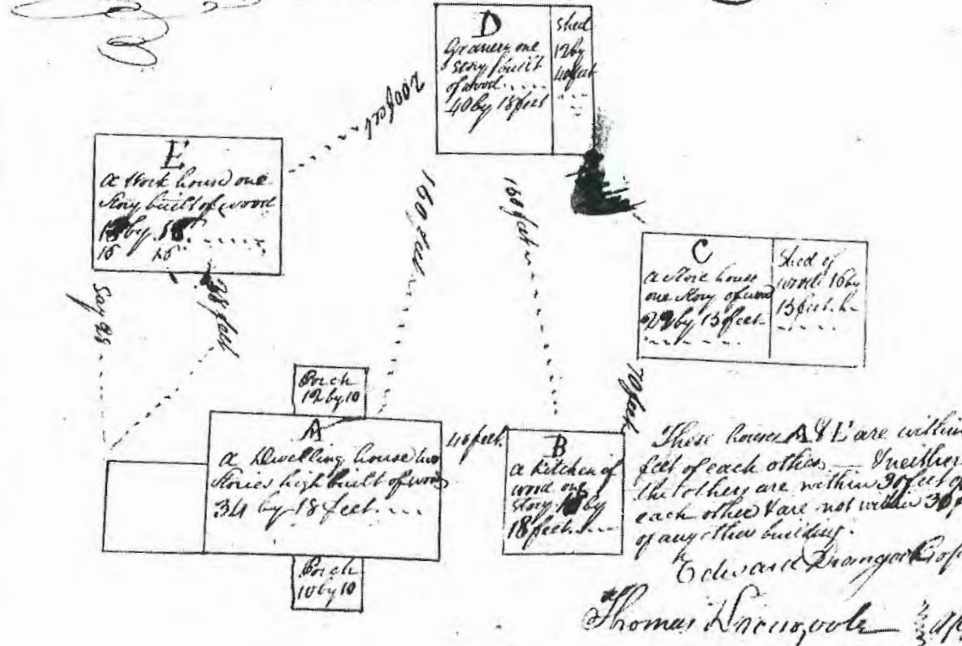 D
Granery one
Story built
of wood....
40 by 18 feet
Shed
12 by
40 feet
200 feet
E
a Work house one
Story built of wood
16 16
160 feet
160 feet
C
a Store house
one Story of wood
22 by 15 feet
Shed of
wood 16 by
15 feet
Say 28
28 feet
Porch
12 by 10
A
a Dwelling house two
Stories high built of wood
34 by 18 feet....
40 feet
B
a Kitchen of
wood one
Story by
18 feet....
70 feet
Porch
10 by 10
These houses A & E are within
feet of each other
the others are within 30 feet of
each other & are not within 30 f
of any other building.
Edward
Thomas